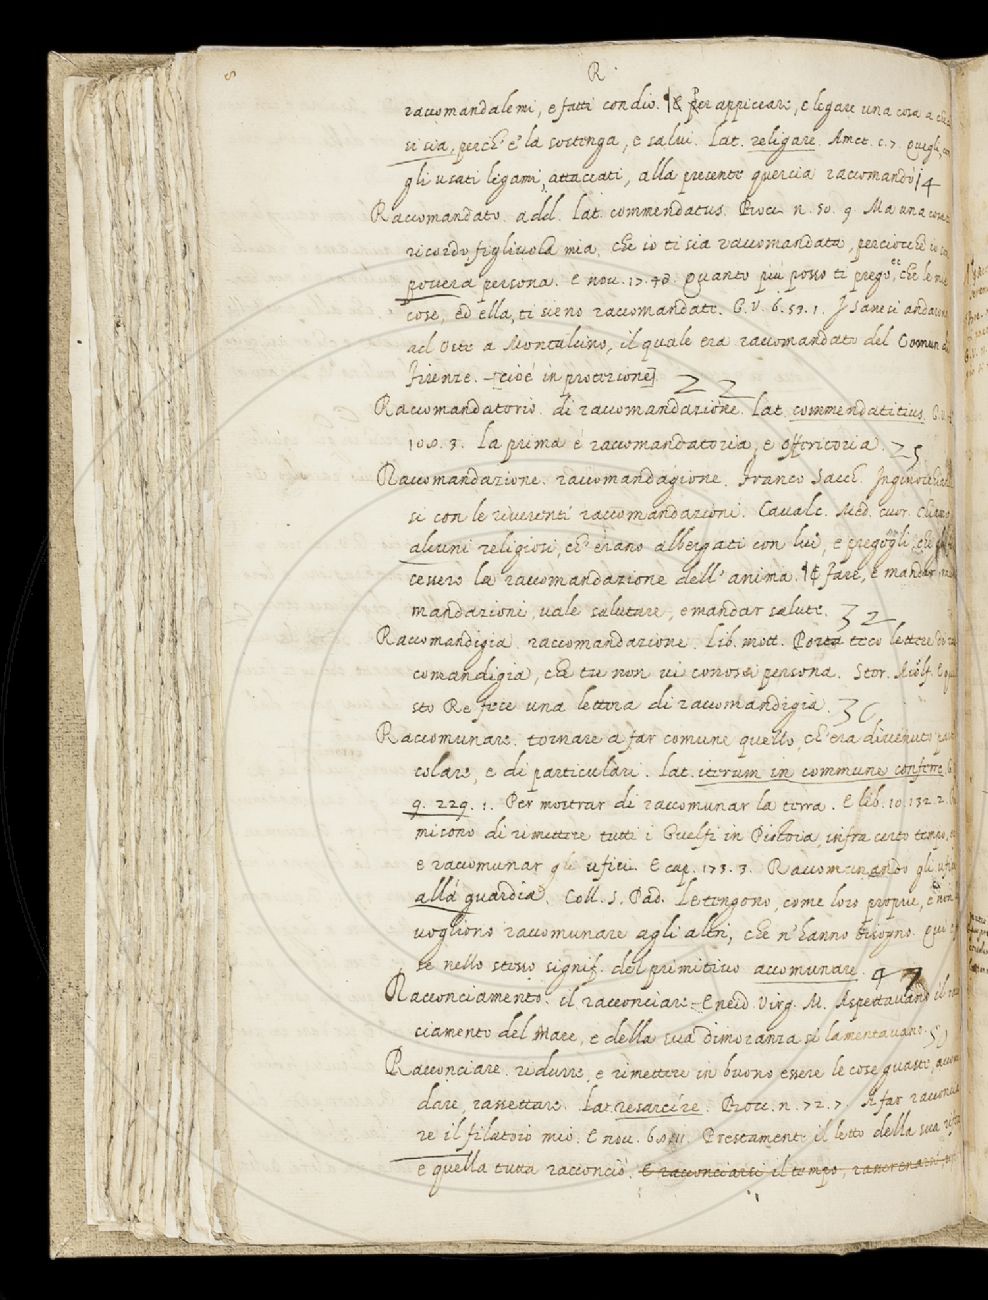 R.
raccomandalemi, e fatti con dio. Per appiccare, e legare una cosa a che
si sia, perch'e' la sostenga, e salvi. Lat. religare. Amet. c. 7. Quegli, con
gli usati legami, attaccati, alla presente quercia raccomandò 14
Raccomandato. add. Lat. commendatus. Bocc. n. 50. 9. Ma una cosa ti
ricordo, figliuola mia, che io ti sia raccomandata, perciocch' io son
povera persona. E nov. 17. 48. Quanto più posso ti prego, che le mie
cose, ed ella, ti sieno raccomandate. G. V. 6. 53. 1. I Sanesi andarono
ad Oste a Montalcino, il quale era raccomandato del Comun di
Firenze. [cioè in protezione]. 22
Raccomandatorio. di raccomandazione. Lat. commendatitius. G. V.
100. 3. La prima è raccomandatoria, e offritoria. 25
Raccomandazione. raccomandagione. Franco Sacch.
si con le riverenti raccomandazioni. Cavalc. Med. cuor. Chiamò
alcuni religiosi, ch'erano albergati con lui, e pregogli, che gli
cessero la raccomandazione dell'anima. Fare, e mandar
mandazioni, vale salutare, e mandar salute. 32
Raccomandigia. raccomandazione. Lib. mott. Porta teco lettere di rac
comandigia, che tu non vi conosci persona. Stor. Aiolf. E que
sto Re fece una lettera di raccomandigia. 36
Raccomunare. tornare a far comune quello, ch'era divenuto parti
colare, e di particulari. Lat. iterum in commune conferre. G.
9. 229. 1. Per mostrar di raccomunar la terra. E lib. 10. 132. 2.
misono di rimettere tutti i Guelfi in Pistoia, infra certo tempo, e
e raccomunar gli ufici. E cap. 173. 3. Raccomunando gli ufici
alla guardia. Coll. S. Pad. Le tengono, come loro proprie, e non
vogliono raccomunare agli altri, che n'hanno bisogno. Qui
se nello stesso signif. del primitivo accomunare. 47
Racconciamento. il racconciare. Eneid. Virg. M. Aspettavano il rac
ciamento del Mare, e della sua dimoranza si lamentavano.
Racconciare. ridurre, e rimettere in buono essere le cose guaste, accomo
dare, rassettare. Lat. resarcire. Bocc. n. 72. 7. A far racconcia
re il filatoio mio. E nov. Prestamente il letto della sua
e quella tutta racconciò. E racconciarsi il tempo, rasserenarsi,